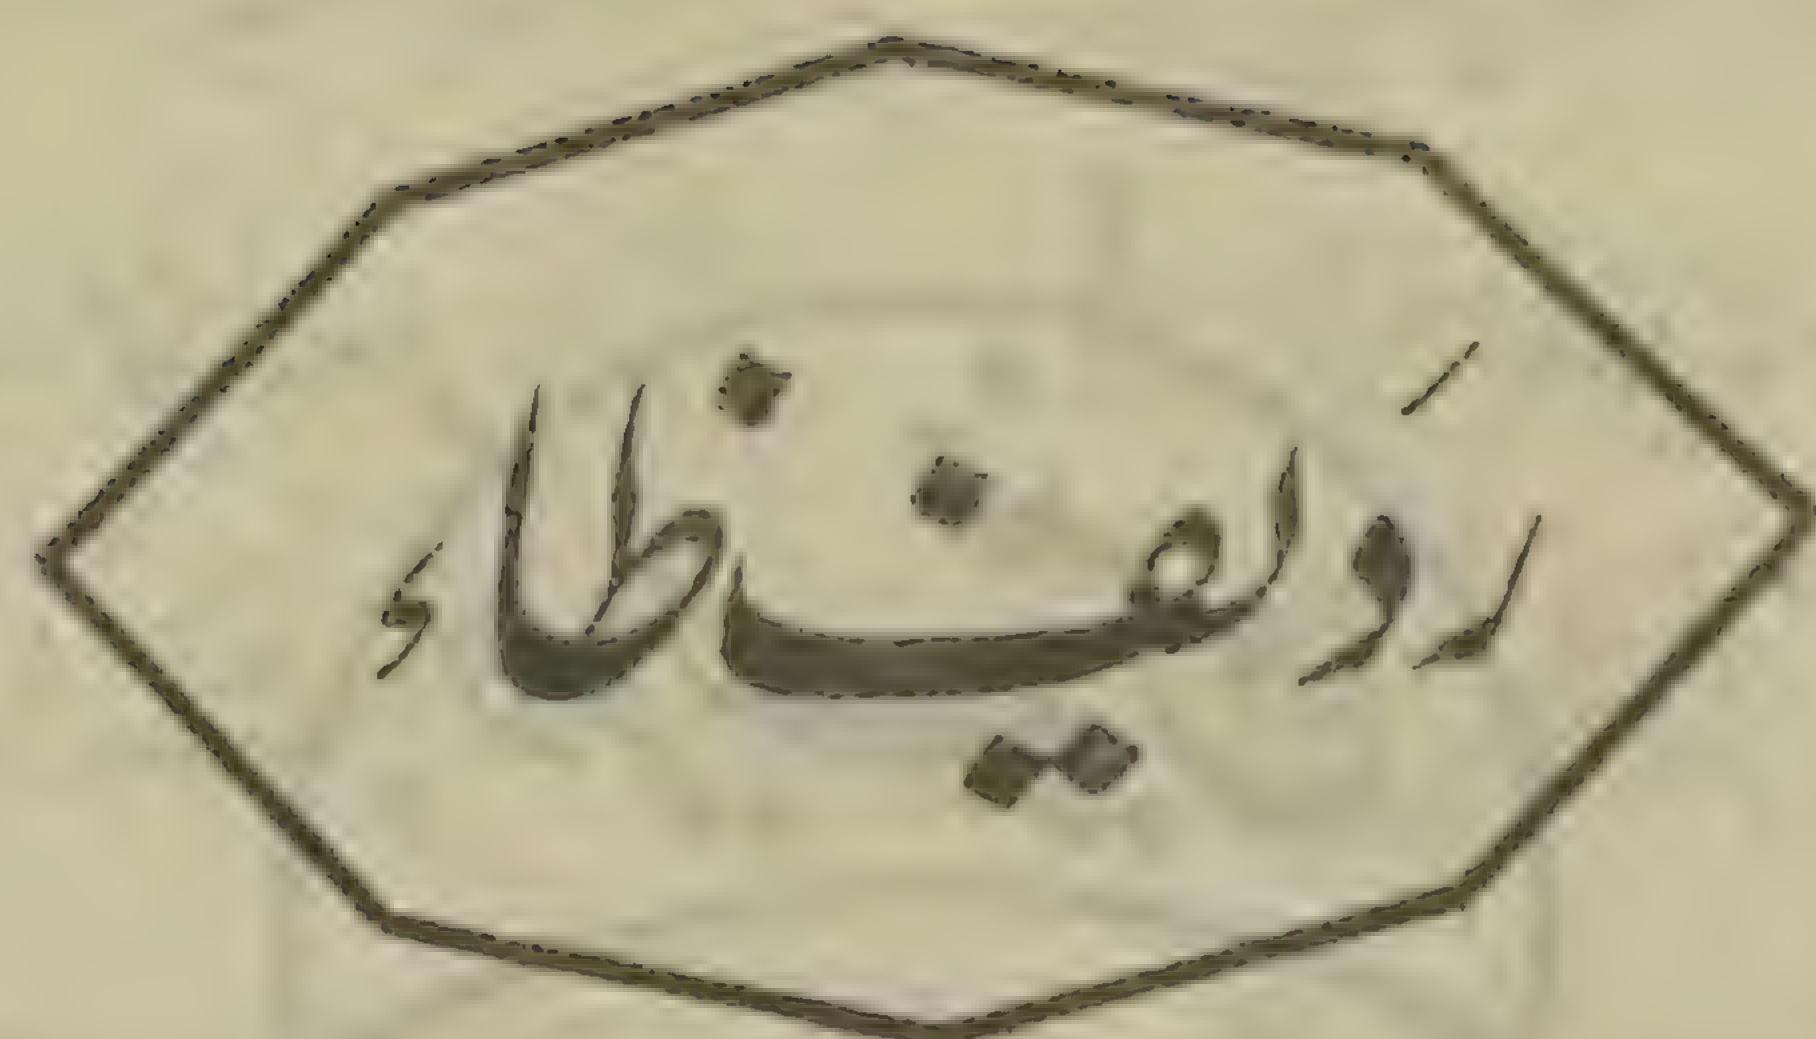 رَدیف ظاء